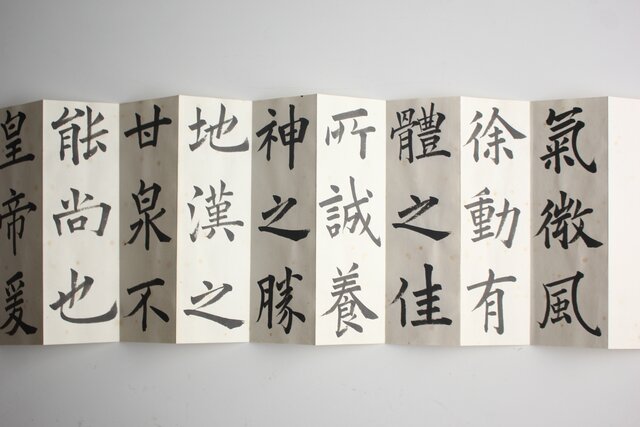 氣微風
徐動有
體之佳
所誠養
神之勝
地漢之
甘泉不
能尚也
皇帝爰